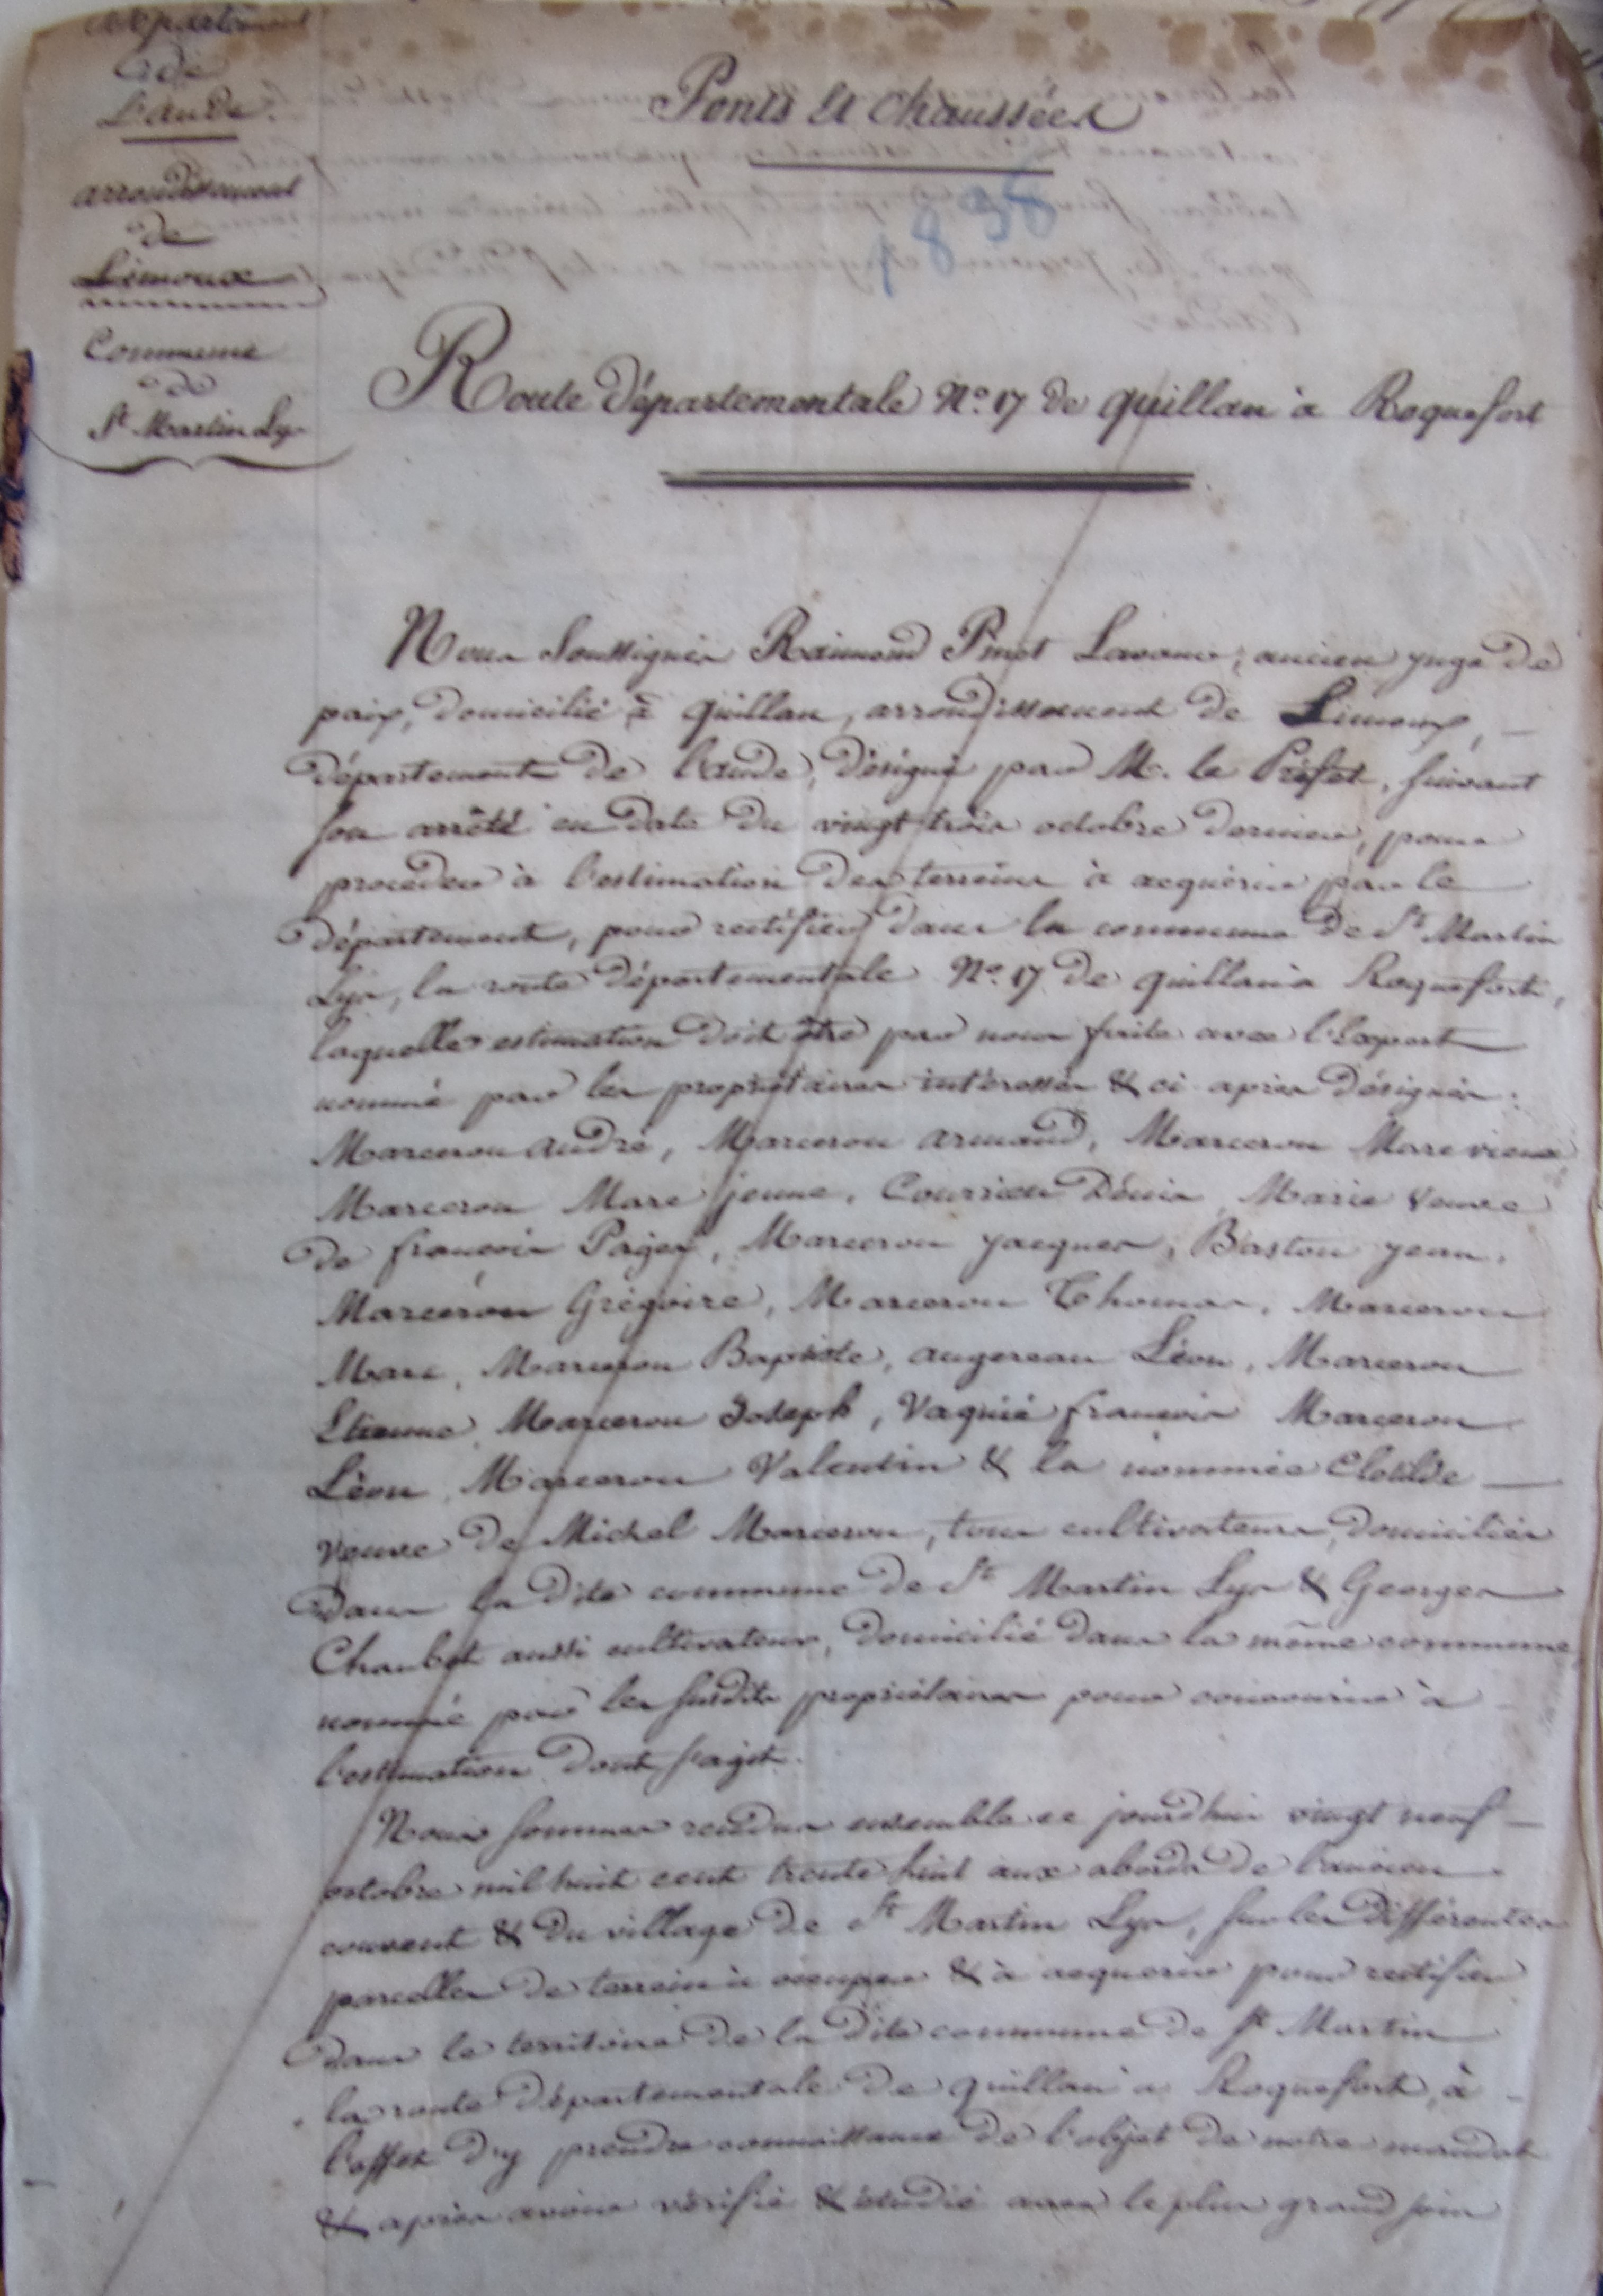 Département
de
L'aude.
arrondissement
de
Limoux
Commune
de
St Martin Lys
Ponts et chaussées
1838
Route départementale No. 17 de quillan à Roquefort
Nous soussignés Raimond Pinet Lavone, ancien juge de
paix, domicilié à quillan, arrondissement de Limoux,
département de l'aude, désigné par M. le Préfet, suivant
son arrêté en date du vingt trois octobre dernier, pour
procéder à l'estimation des terreins à acquérir par le
département, pour rectifier dans la commune de St Martin
Lys, la route départementale No. 17 de quillan à Roquefort,
laquelle estimation doit être par nous faite avec l'Expert
nommé par les propriétaires intéressés & ci après désignés :
Marceron andré, Marceron armand, Marceron Marc vieux
Marceron Marc jeune, Courrieu Dénis, Marie veuve
de françois Pagès, Marceron jacques, Baston jean,
Marceron Grégoire, Marceron Thomas, Marceron
Marc, Marceron Baptiste, augereau Léon, Marceron
Etienne, Marceron Joseph, Vaquié françois Marceron
Léon, Marceron Valentin & la nommée Clotilde
veuve de Michel Marceron, tous cultivateurs, domiciliés
dans la dite commune de St Martin Lys & Georges
Chaubet aussi cultivateur, domicilié dans la même commune
nommé par les susdits propriétaires pour concourir à
l'estimation dont s'agit.
Nous sommes rendus ensemble ce jourd'hui vingt neuf
octobre mil huit cent trente huit aux abords de l'ancien
couvent & du village de St Martin Lys, sur les différentes
parcelles de terrein à occuper & à acquerir pour rectifier
dans le territoire de la dite commune de St Martin
la route départementale de quillan à Roquefort, à
l'effet d'y prendre connaissance de l'objet de notre mandat
& après avoir vérifié & étudié avec le plus grand soin